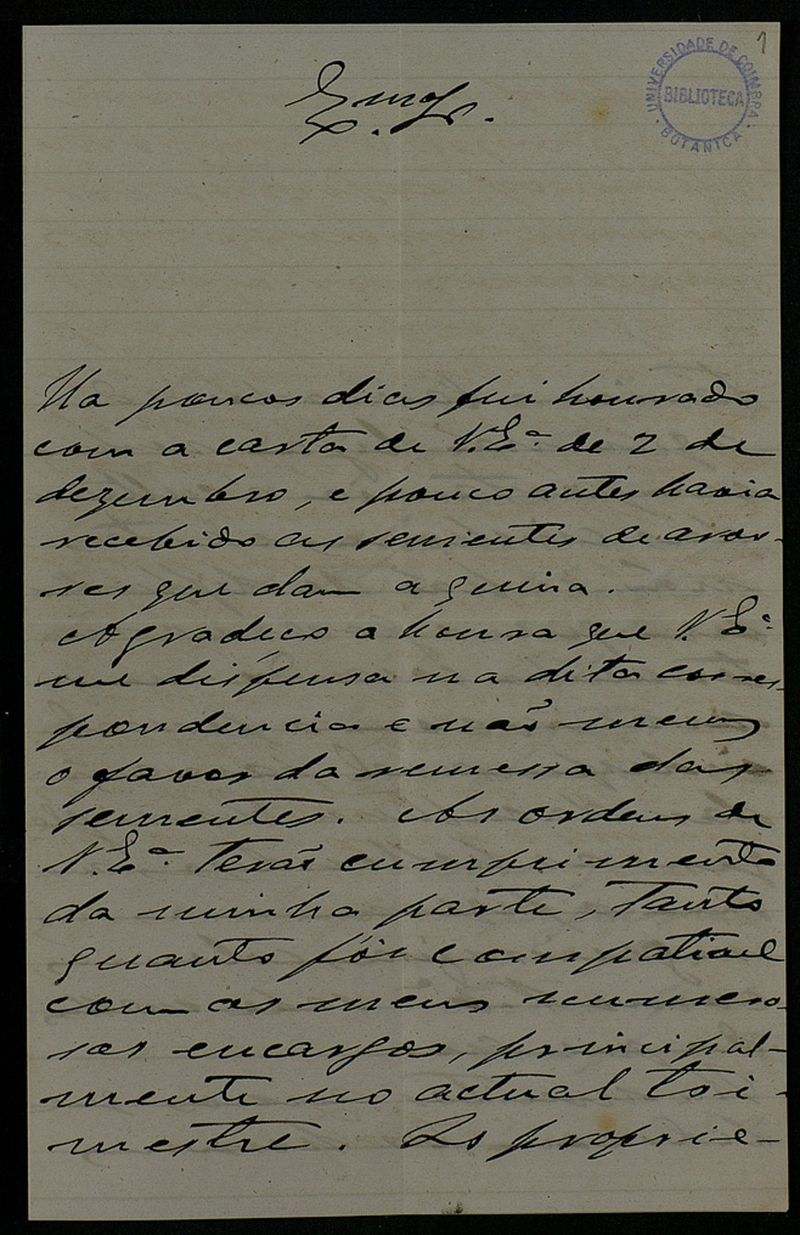 1
UNIVERSIDADE DE COIMBRA
BIBLIOTECA
BOTANICA
Exmo Sr.
Ha poucos dias fui honrado
com a carta de V. Exª de 2 de
dezembro, e pouco antes havia
recebido as sementes de arvo-
res que dam a quina.
Agradeço a honra que V. Exª
me dispensa na dita corres-
pondencia e não menos
o favor da remessa das
sementes. As ordens de
V. Exª terão cumprimento
da minha parte, tanto
quanto fôr compativel
com os meus numero-
sos encargos, principal-
mente no actual tri-
mestre. Os proprie-